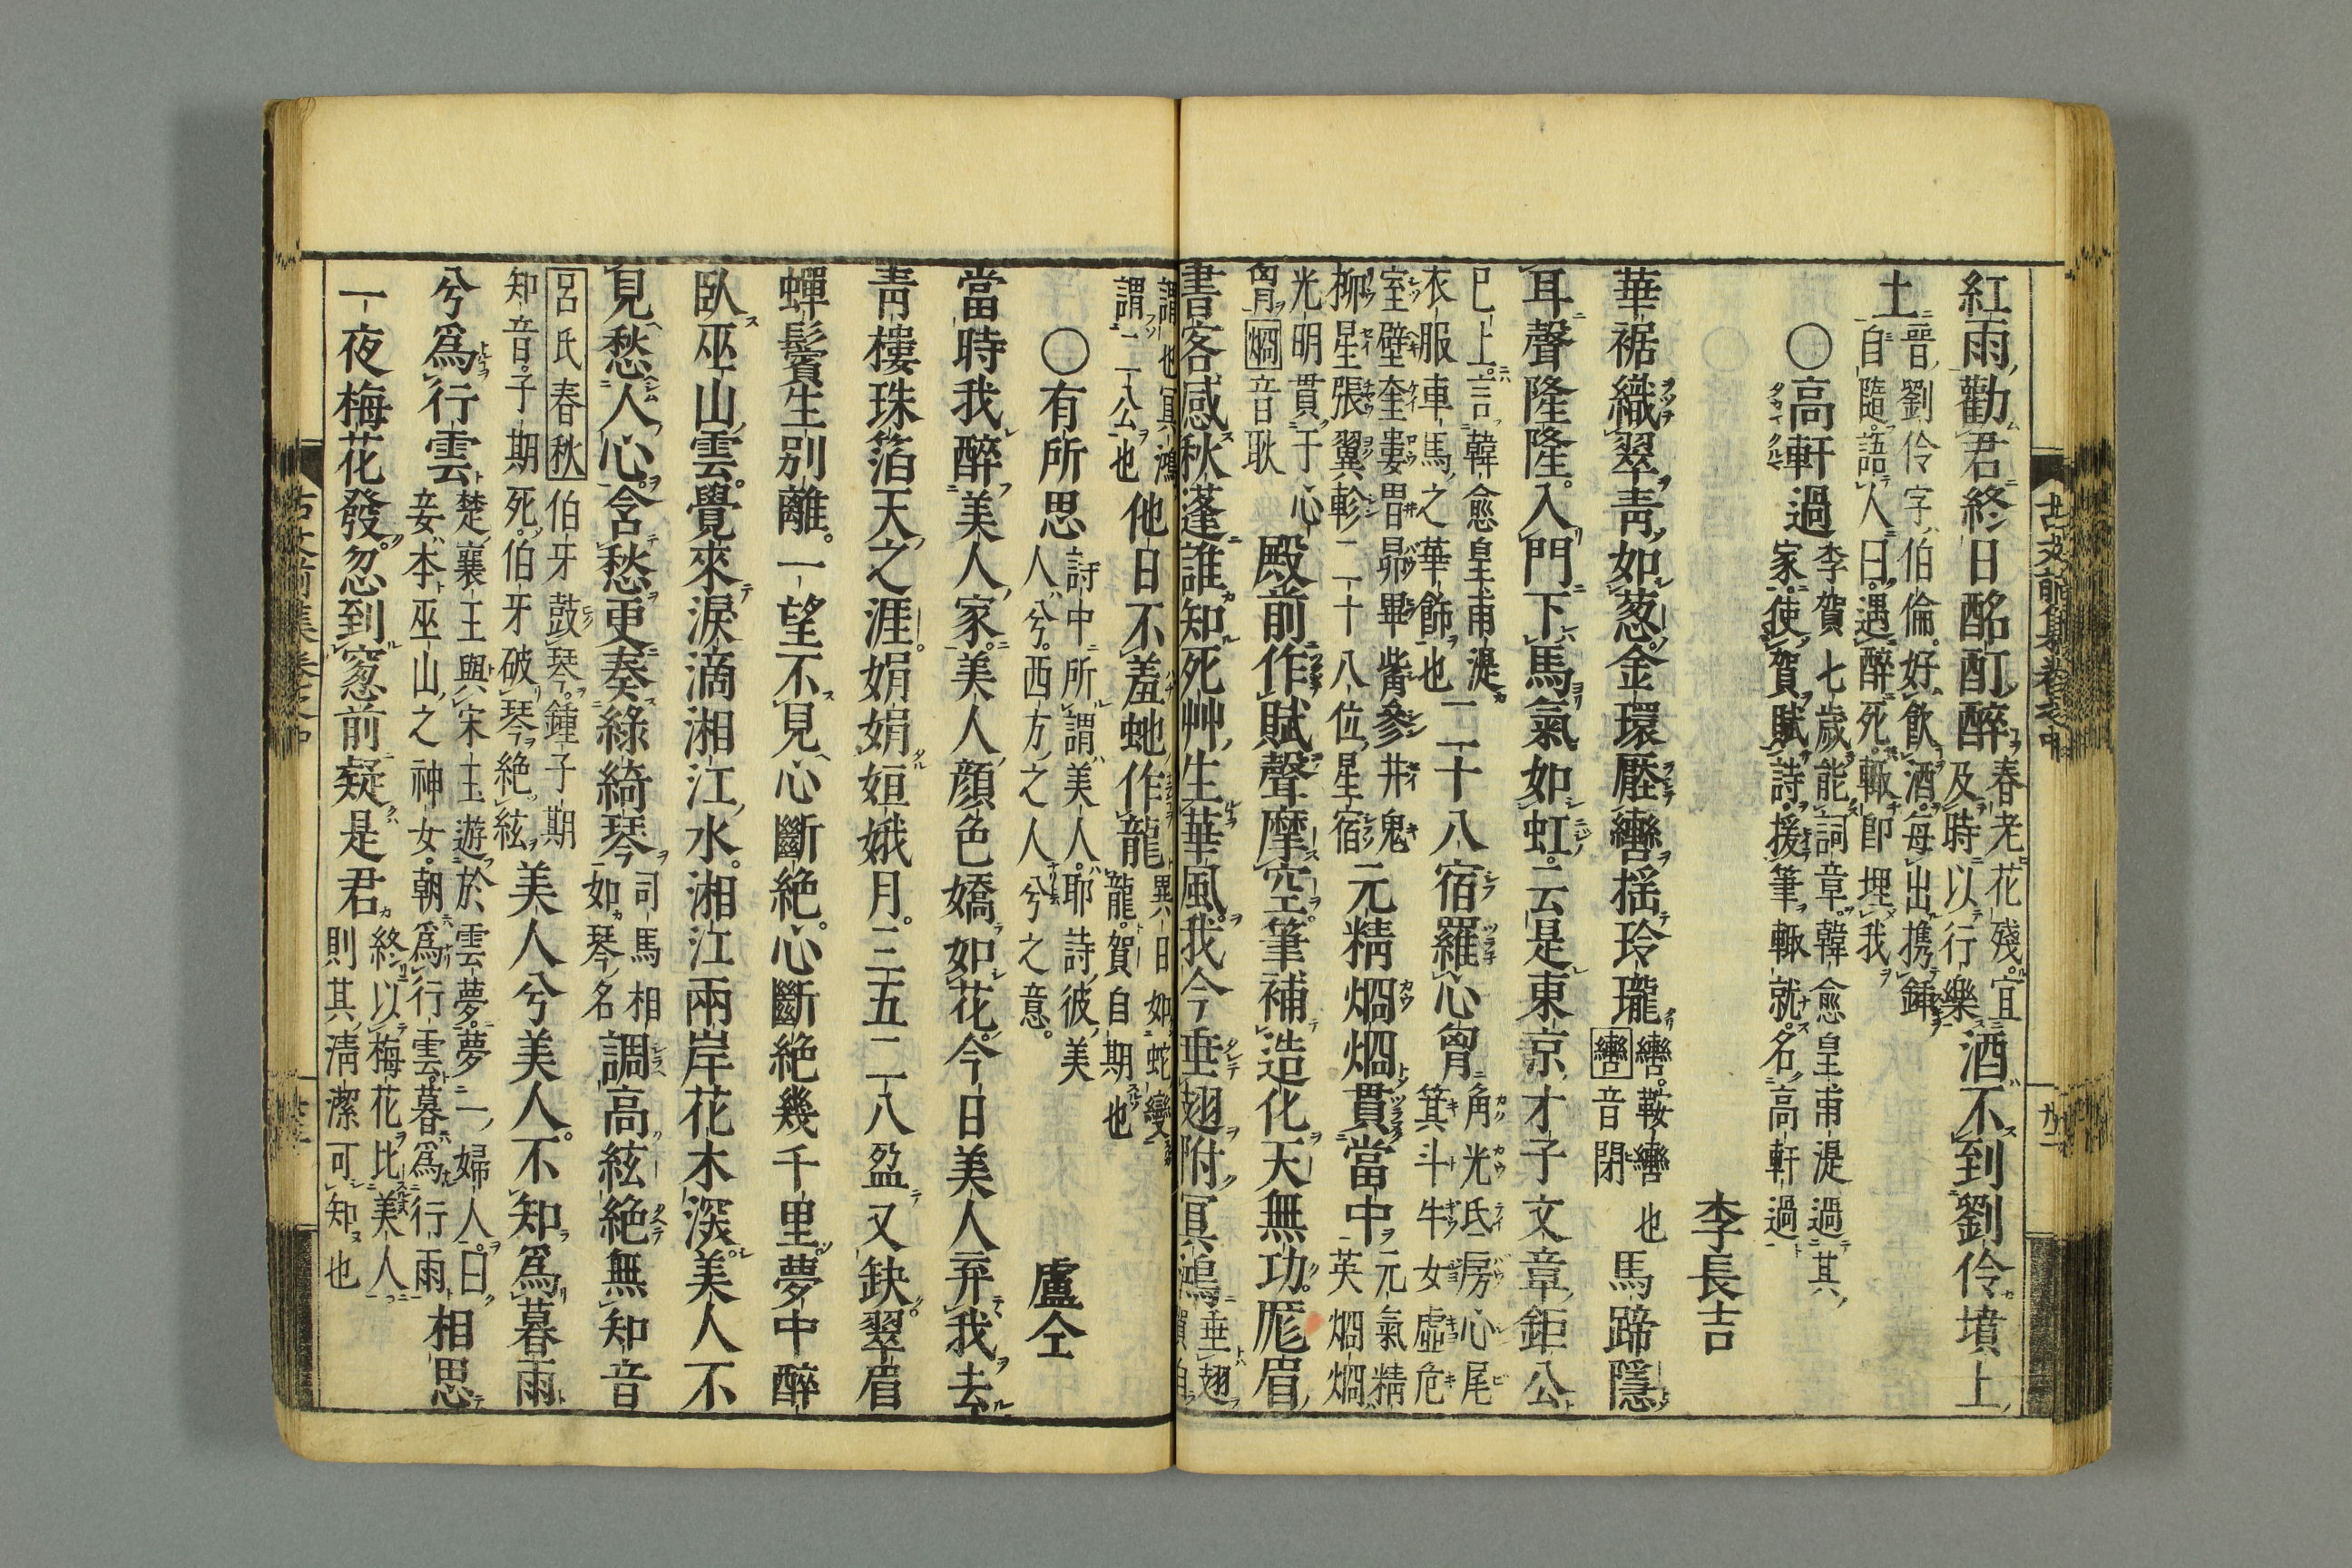 古文前集卷之中
紅雨勸君終日酩酊醉
春老花殘宜
及時以行樂
酒不到劉伶墳上
土
晉劉伶字伯倫好飲酒每出携鍤
自隨語人曰遇醉死輙即埋我
○高軒過
李賀七歲能詞章韓愈皇甫湜過其
家使賀賦詩援筆輙就名高軒過
李長吉
華裾織翠靑如葱金環壓轡揺玲瓏
轡鞍轡也
轡音閉
馬蹄隱
耳聲隆隆入門下馬氣如虹云是東京才子文章鉅公
已上言韓愈皇甫湜
衣服車馬之華飾也
二十八宿羅心胷
角光氐房心尾
箕斗牛女虛危
室壁奎婁胃昴畢觜參井鬼
柳星張翼軫二十八位星宿
元精烱烱貫當中
元氣精
英烱烱
光明貫于心
胷烱音耿
殿前作賦聲摩空筆補造化天無功厖眉
書客感秋蓬誰知死艸生華風我今垂翅附冥鴻
垂翅
賀自
謂也冥鴻
謂二公也
他日不羞虵作龍
異日如蛇變
龍賀自期也
○有所思
詩中所謂美人耶詩彼美
人兮西方之人兮之意
盧仝
當時我醉美人家美人顔色嬌如花今日美人弃我去
靑樓珠箔天之涯娟娟姮娥月三五二八盈又缺翠眉
蟬鬢生別離一望不見心斷絕心斷絕幾千里夢中醉
臥巫山雲覺來淚滴湘江水湘江兩岸花木深美人不
見愁人心含愁更奏綠綺琴
司馬相
如琴名
調高絃絕無知音
呂氏春秋伯牙鼓琴鍾子期
知音子期死伯牙破琴絕絃
美人兮美人不知爲暮雨
兮爲行雲
楚襄王與宋玉遊於雲夢夢一婦人曰
妾本巫山之神女朝爲行雲暮爲行雨
相思
一夜梅花發忽到窻前疑是君
終以梅花比美人
則其淸潔可知也